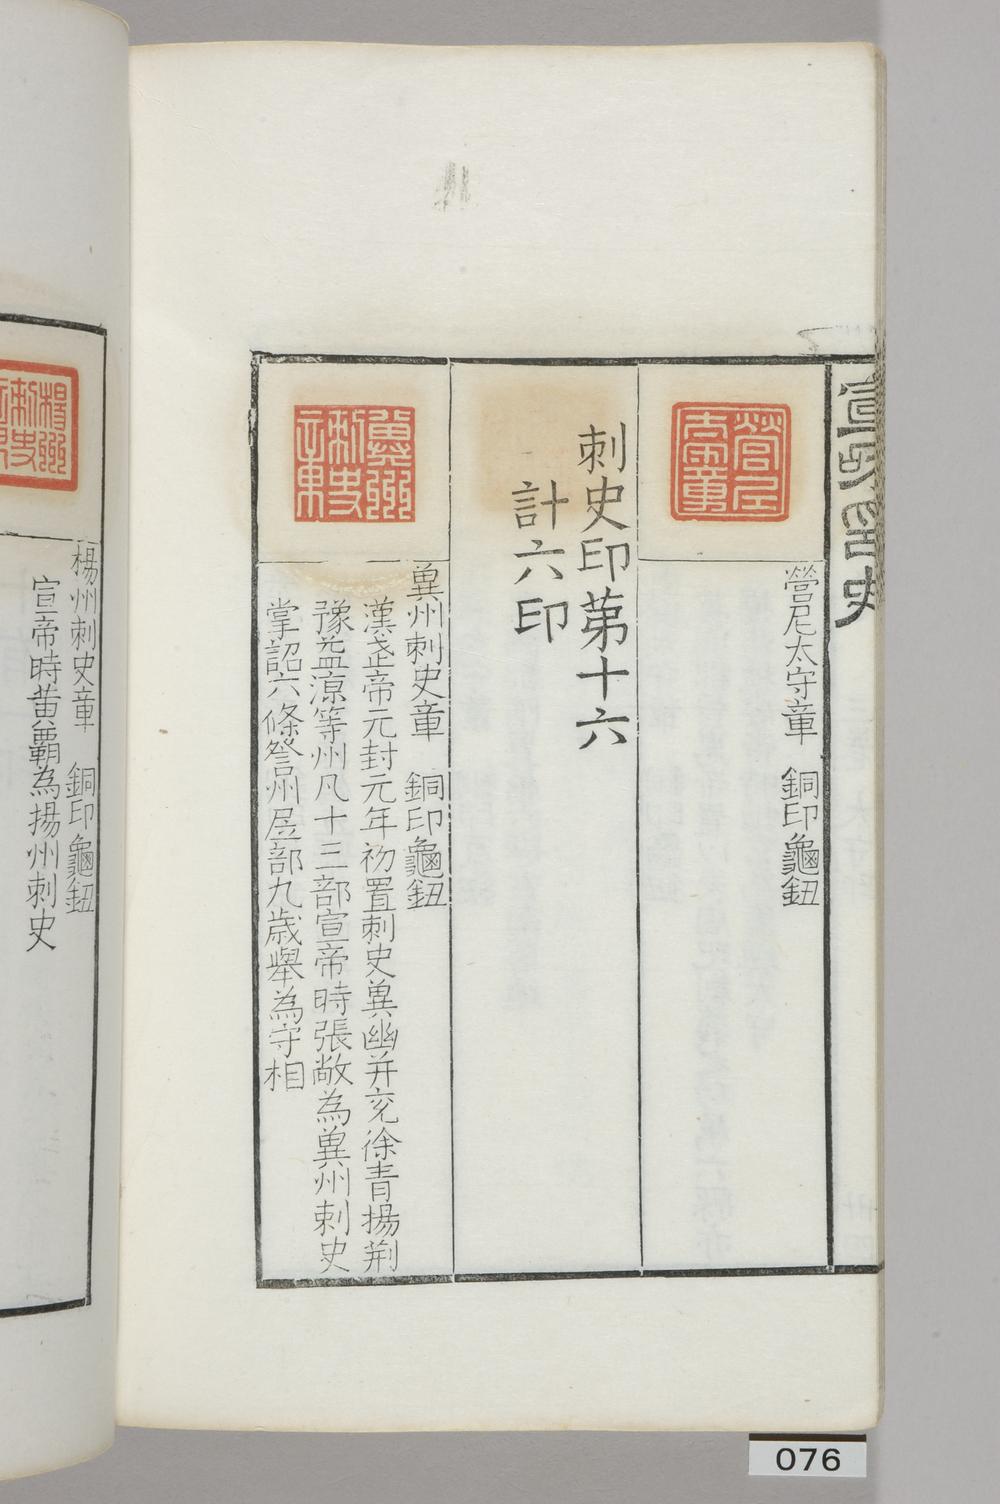 宣和印史
營尼太守章　銅印龜鈕
刺史印苐十六
計六印
兾州刺史章　銅印龜鈕
漢武帝元封元年初置刺史兾幽并兖徐青揚荆
豫益凉等州凡十三部宣帝時張敞為兾州刺史
掌詔六條詧州居部九歳舉為守相
楊州刺史章　銅印龜鈕
宣帝時黄霸為揚州刺史
076